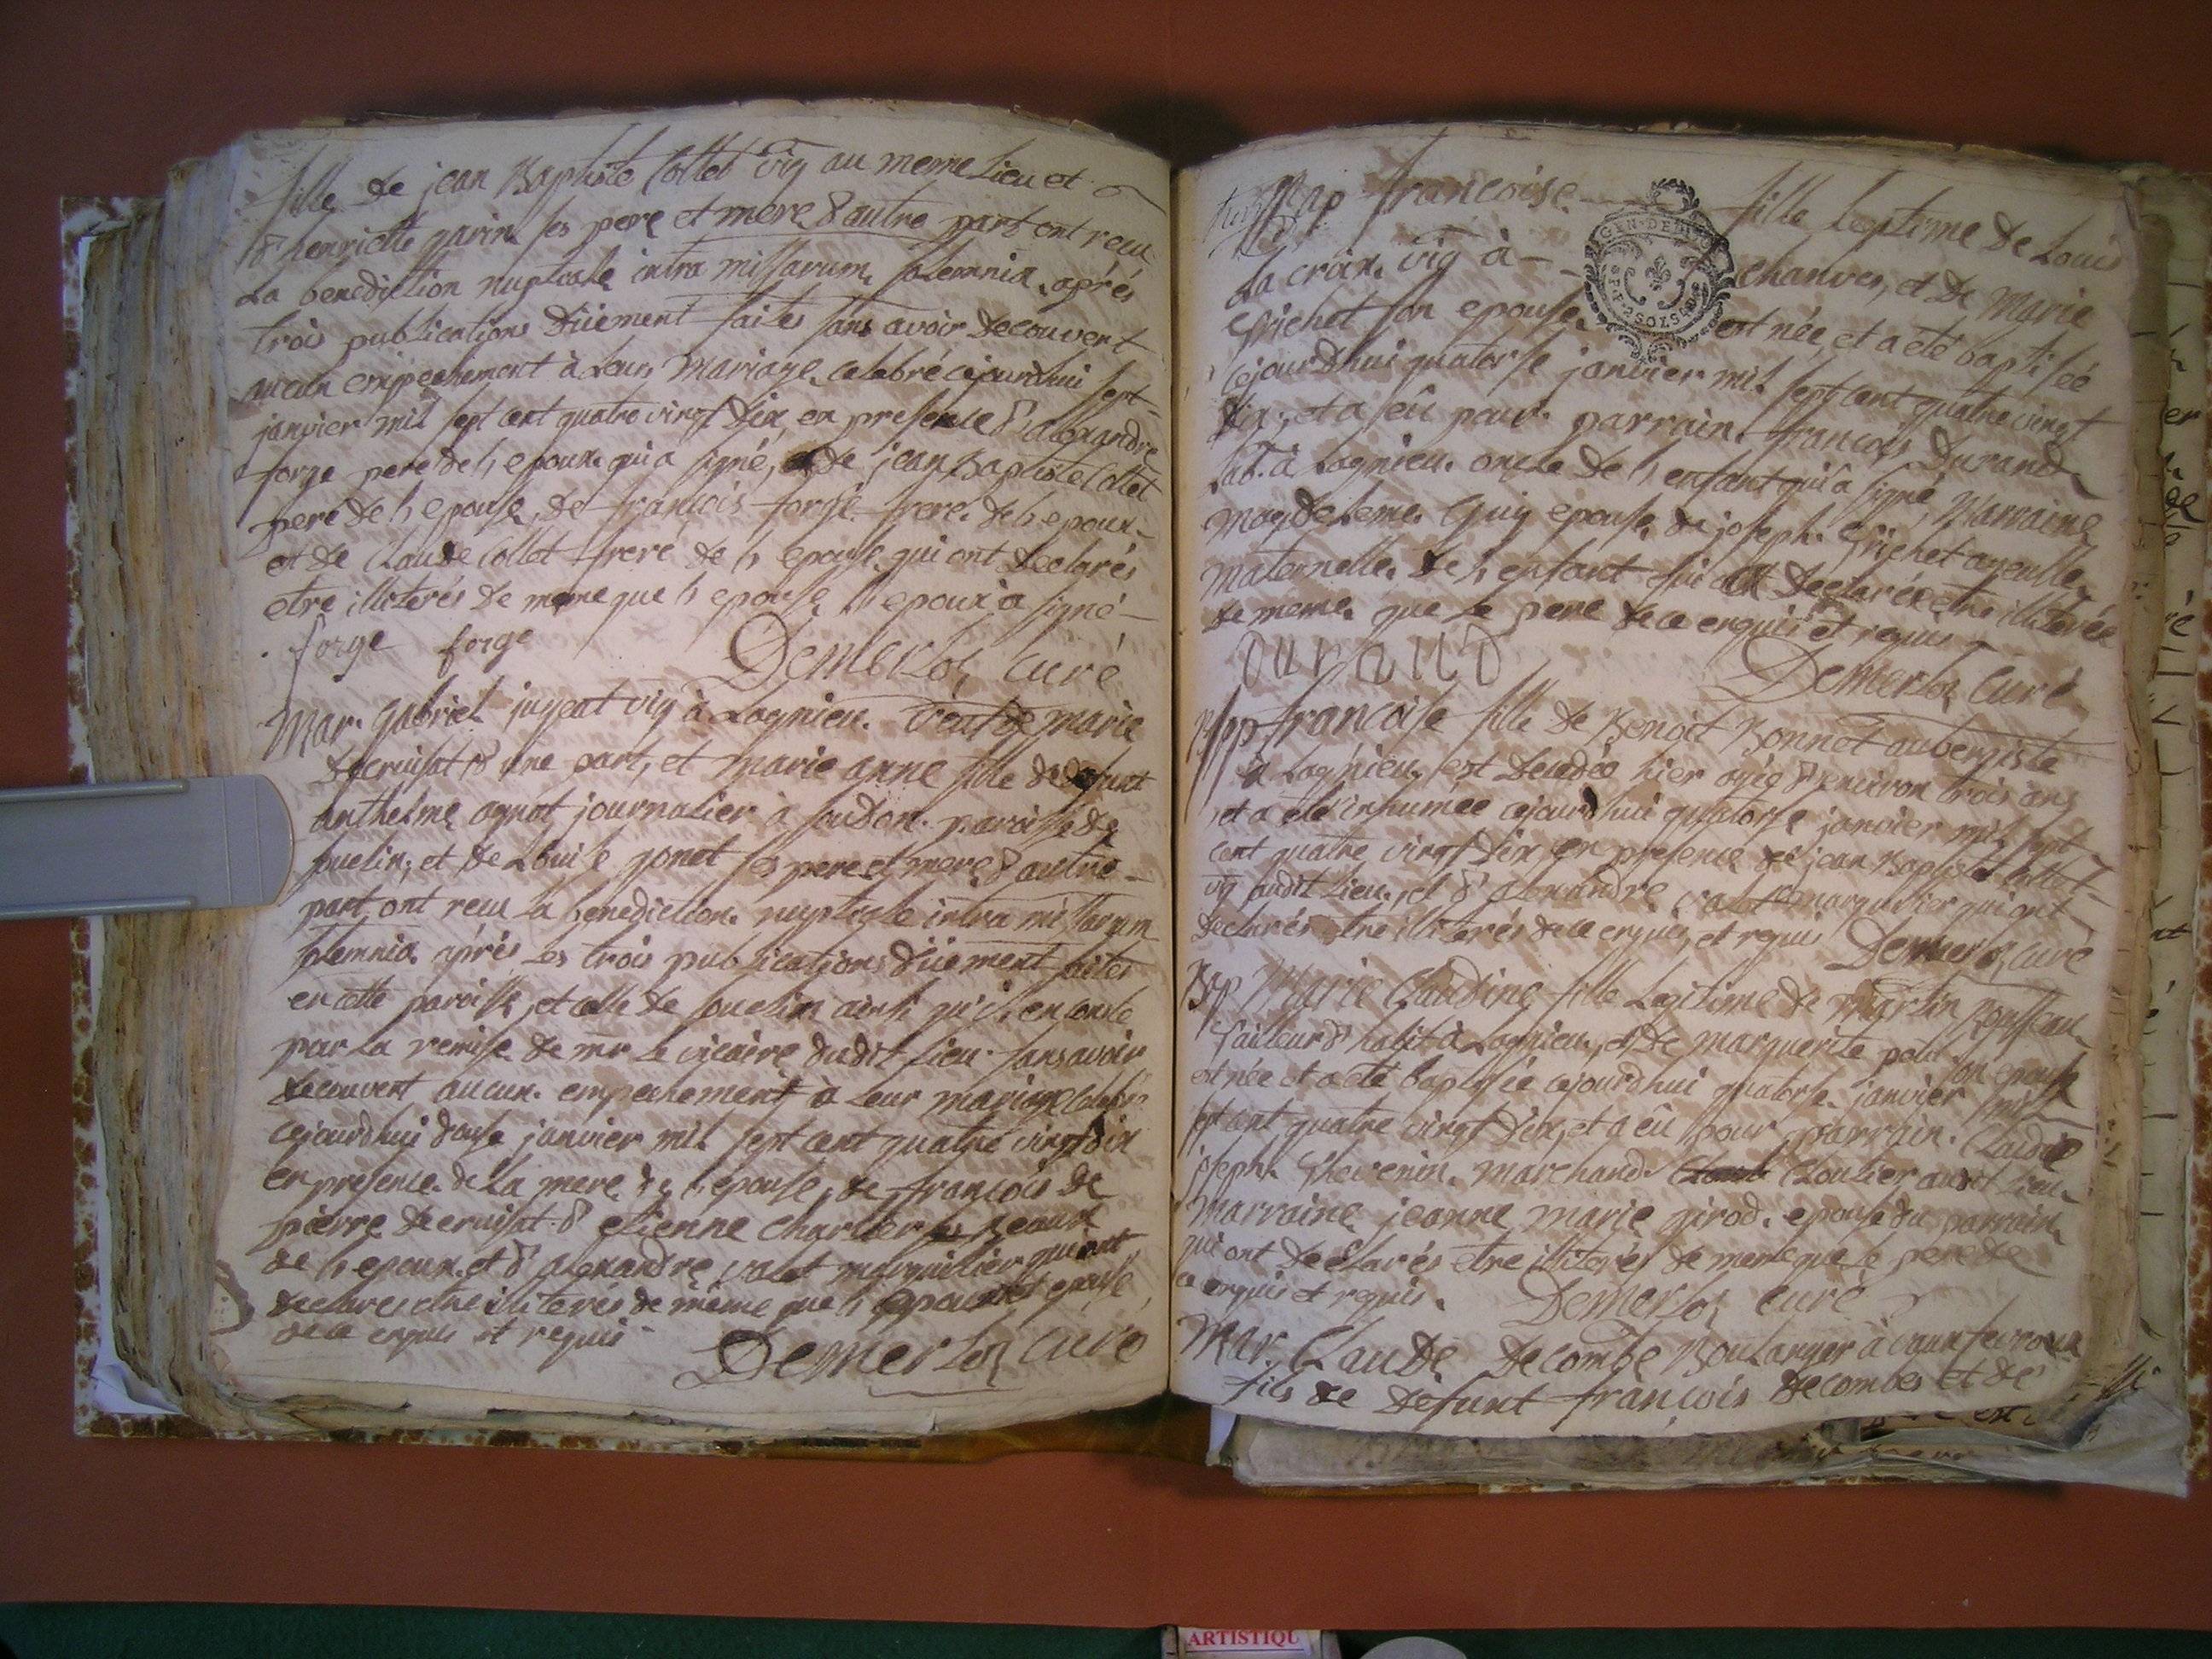 fille de jean Baptiste Collet vig au meme Lieu et
d'henriette garin ses pere et mere d'autre part ont recu
La benediction nuptiale intra missarum solemnia, aprés
trois publications düement faites sans avoir decouvert
aucun empechement à Leur mariage celebré cejourdhui sept
janvier mil sept cent quatre vingt dix en presence d'alexandre
forge pere de l'epoux qui a signé, de jean Baptiste Collet
pere de l'epouse, de francois forge frere de l'epoux
et de Claude Collet frere de l'epouse qui ont declarés
etre illiterés de meme que l'epouse l'epoux a signé
forge forge Curé
Mar. gabriel jugeat vig à Lagnieu veuf de marie
d'une part, et marie anne fille de defunt
anthelme agnot journalier à soudon paroisse de
suelin, et de Louise gonet ses pere et mere d'autre
part ont recu La benediction nuptiale intra missarum
solemnia aprés Les trois publications düement faites
en cette paroisse, et celle de souclin ainsi qu'il en conste
par La remise de mr Le vicaire dudit Lieu sans avoir
decouvert aucun empechement à Leur mariage celebré
cejourdhui douse janvier mil sept cent quatre vingt dix
en presence de La mere de l'epouse, de francois de
pierre d'etienne charlier
de l'epoux et d'alexandre valet marguilier qui ont
declarés etre illiterés de même que l'epoux et epouse
de ce enquis et requis
Curé
Bap francoise fille Legitime de Louis
La croix vig à chanves, et de Marie
son epouse est née et a eté baptisée
cejourdhui quatorse janvier mil sept cent quatre vingt
dix, et a eû pour parrain francois Durand
lab. à Lagnieu oncle de l'enfant qui a signé, Marraine
Magdeleine Guy epouse de joseph ayeulle
maternelle de l'enfant qui a declarée etre illiterée
de meme que Le pere de ce enquis et requis
Durand Curé
francoise fille de Benoit Bonnet aubergiste
à Lagnieu, est decedée hier agée d'environ trois ans
et a eté inhumée cejourdhui quatorse janvier mil sept
cent quatre vingt dix en presence de jean Baptiste Collet
vig audit Lieu, et d'alexandre valet marguilier qui ont
declarés etre illiterés de ce enquis, et requis Curé
Bap Marie Claudine fille Legitime de martin Rousseau
tailleur d'habit à Lagnieu, et de marguerite son epouse
est née et a eté baptisée cejourdhui quatorse janvier mil
sept cent quatre vingt dix, et a eû pour parrain Claude
joseph Thevenin marchand Cloutier audit Lieu
marraine jeanne marie girod epouse du parrain
qui ont declarés etre illiterés de meme que Le pere de
ce enquis et requis. Curé
Mar. Claude Decombe Boulanger à
fils de defunt francois decombes et de
GEN. DE
ARTISTIQU